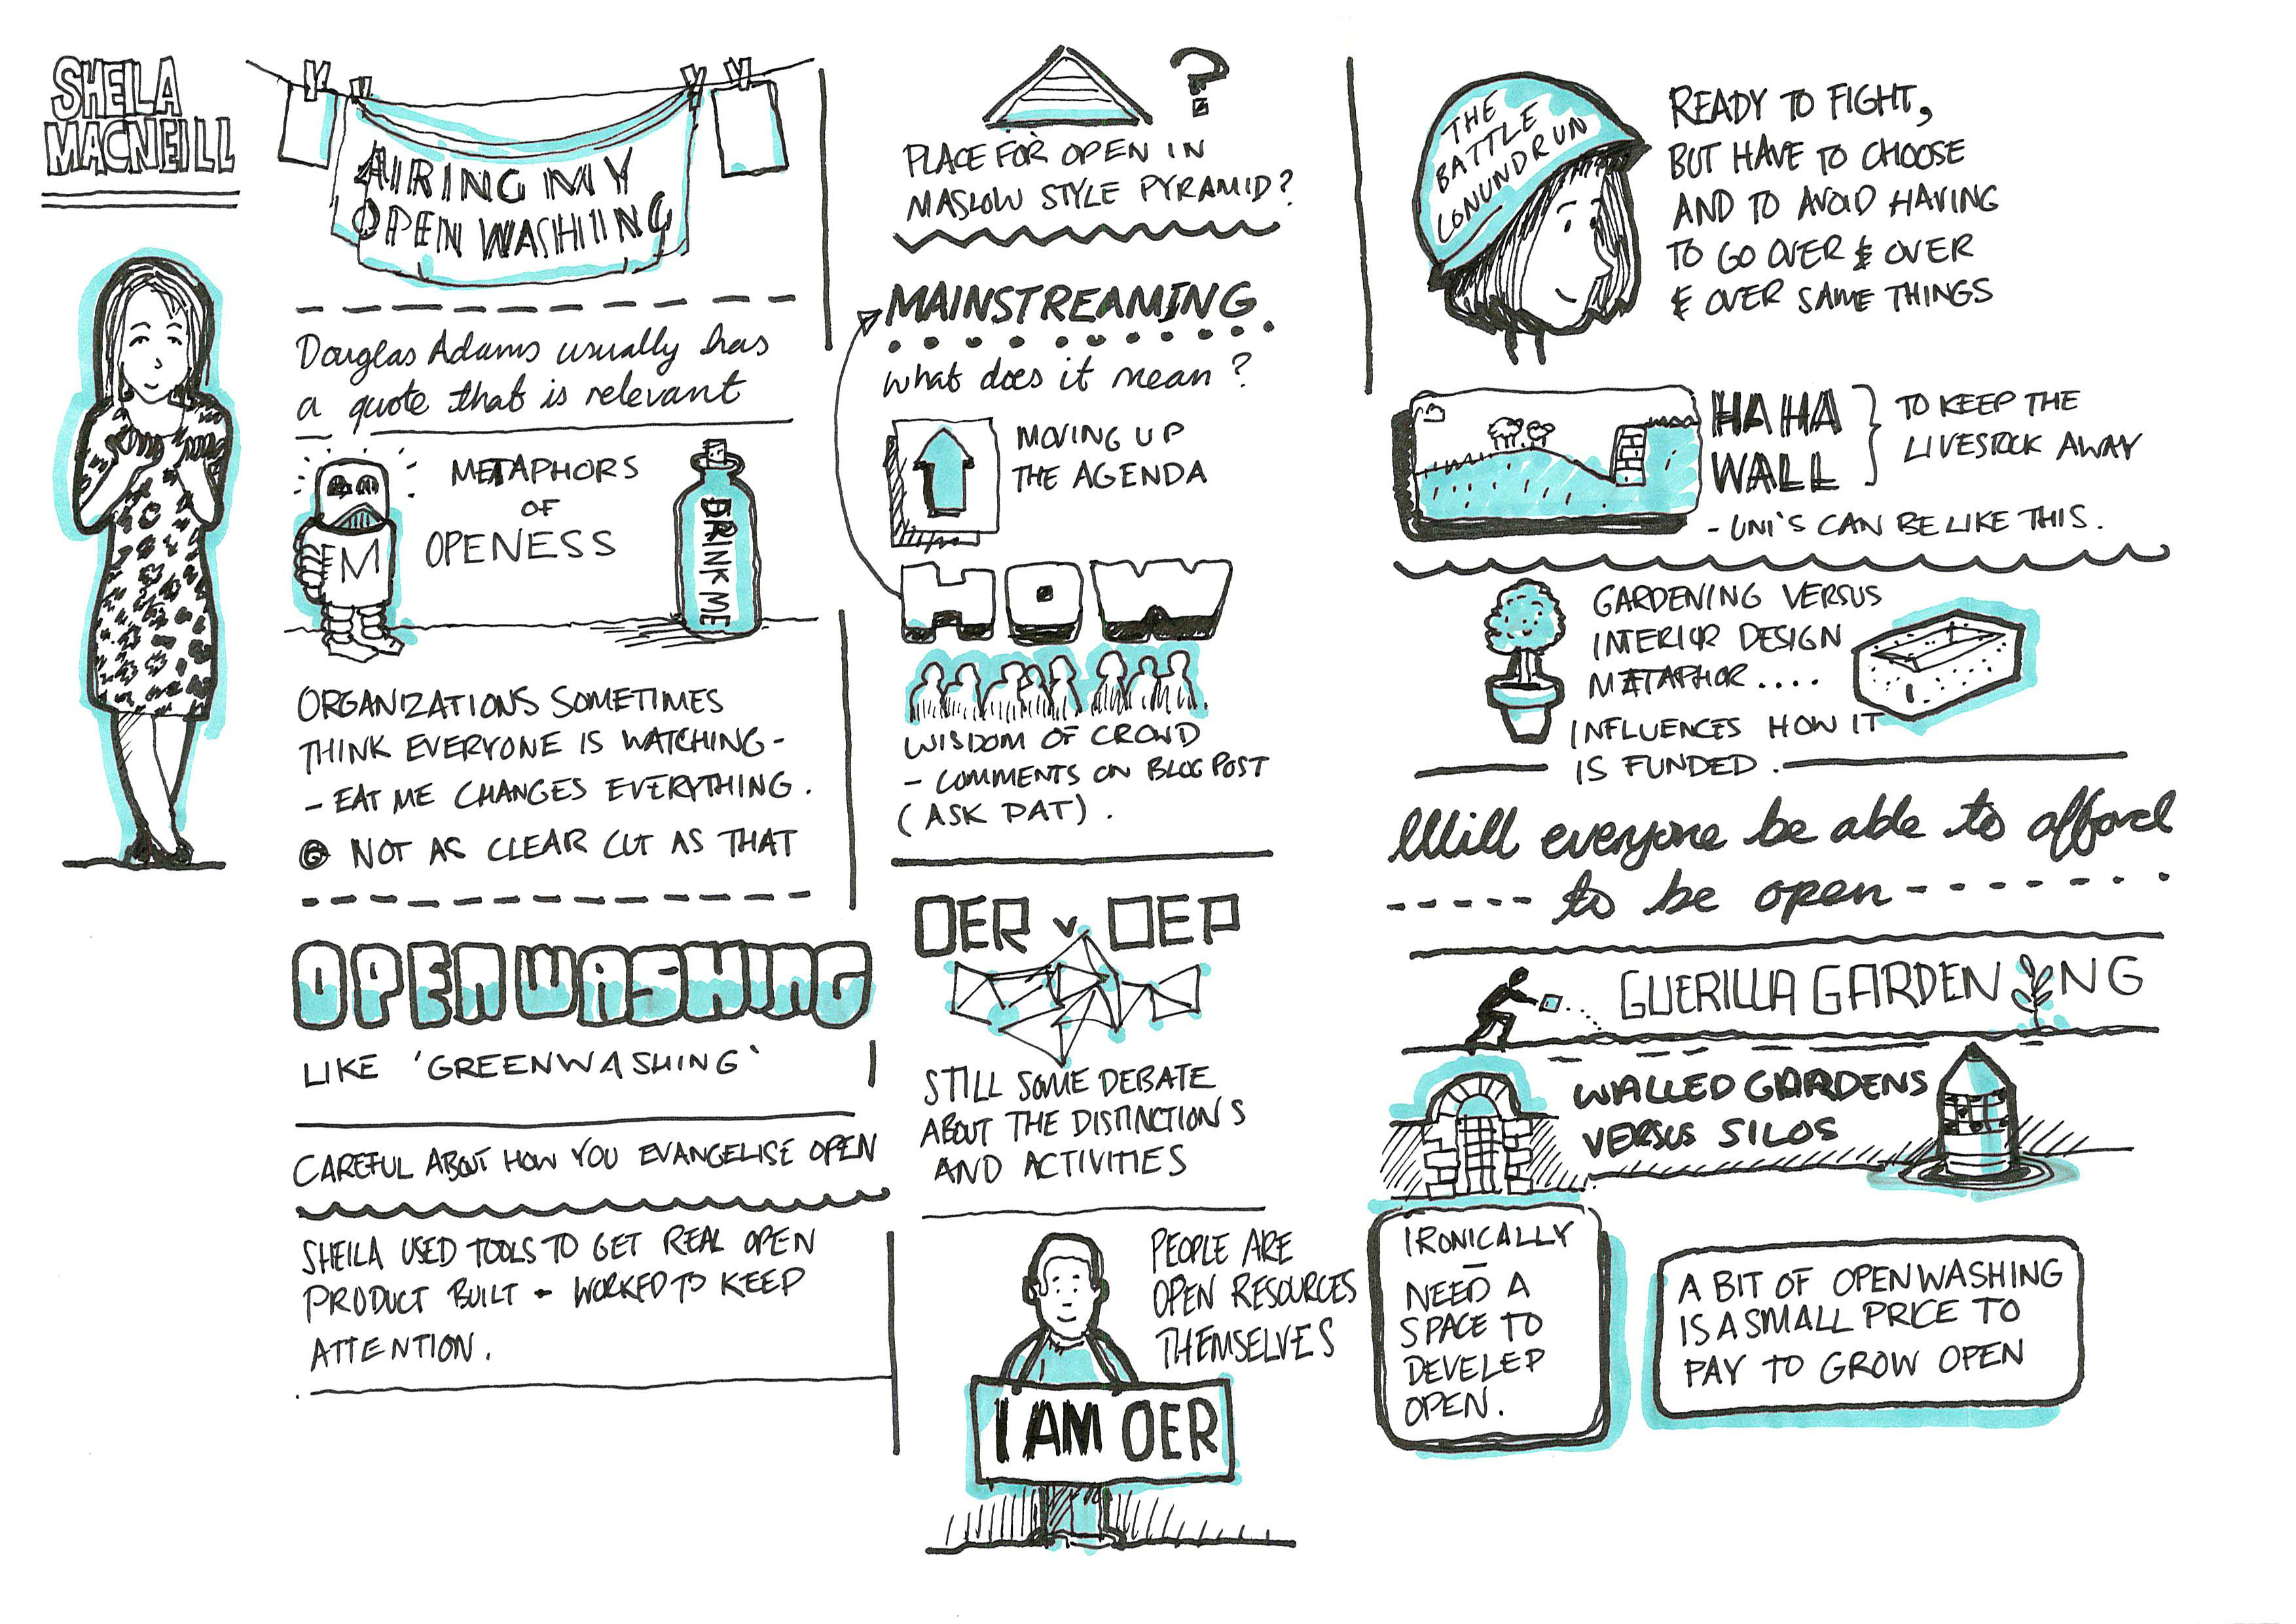 SHEILA
MACNEILL
AIRING MY
OPEN WASHING
Douglas Adams usually has
a quote that is relevant
METAPHORS
OF
OPENESS
M
DRINK ME
ORGANIZATIONS SOMETIMES
THINK EVERYONE IS WATCHING -
- EAT ME CHANGES EVERYTHING.
NOT AS CLEAR CUT AS THAT
OPENWASHING
LIKE 'GREENWASHING'
CAREFUL ABOUT HOW YOU EVANGELISE OPEN
SHEILA USED TOOLS TO GET REAL OPEN
PRODUCT BUILT - WORKED TO KEEP
ATTENTION.
?
PLACE FOR OPEN IN
MASLOW STYLE PYRAMID?
MAINSTREAMING
what does it mean?
MOVING UP
THE AGENDA
HOW
WISDOM OF CROWD
- COMMENTS ON BLOG POST
(ASK PAT).
OER v OEP
STILL SOME DEBATE
ABOUT THE DISTINCTIONS
AND ACTIVITIES
PEOPLE ARE
OPEN RESOURCES
THEMSELVES
I AM OER
THE
BATTLE
CONUNDRUN
READY TO FIGHT,
BUT HAVE TO CHOOSE
AND TO AVOID HAVING
TO GO OVER & OVER
& OVER SAME THINGS
HA HA
WALL
TO KEEP THE
LIVESTOCK AWAY
- UNI'S CAN BE LIKE THIS.
GARDENING VERSUS
INTERIOR DESIGN
METAPHOR....
INFLUENCES HOW IT
IS FUNDED.
Will everyone be able to afford
to be open
GUERILLA GARDENING
WALLED GARDENS
VERSUS SILOS
IRONICALLY
NEED A
SPACE TO
DEVELEP
OPEN.
A BIT OF OPENWASHING
IS A SMALL PRICE TO
PAY TO GROW OPEN